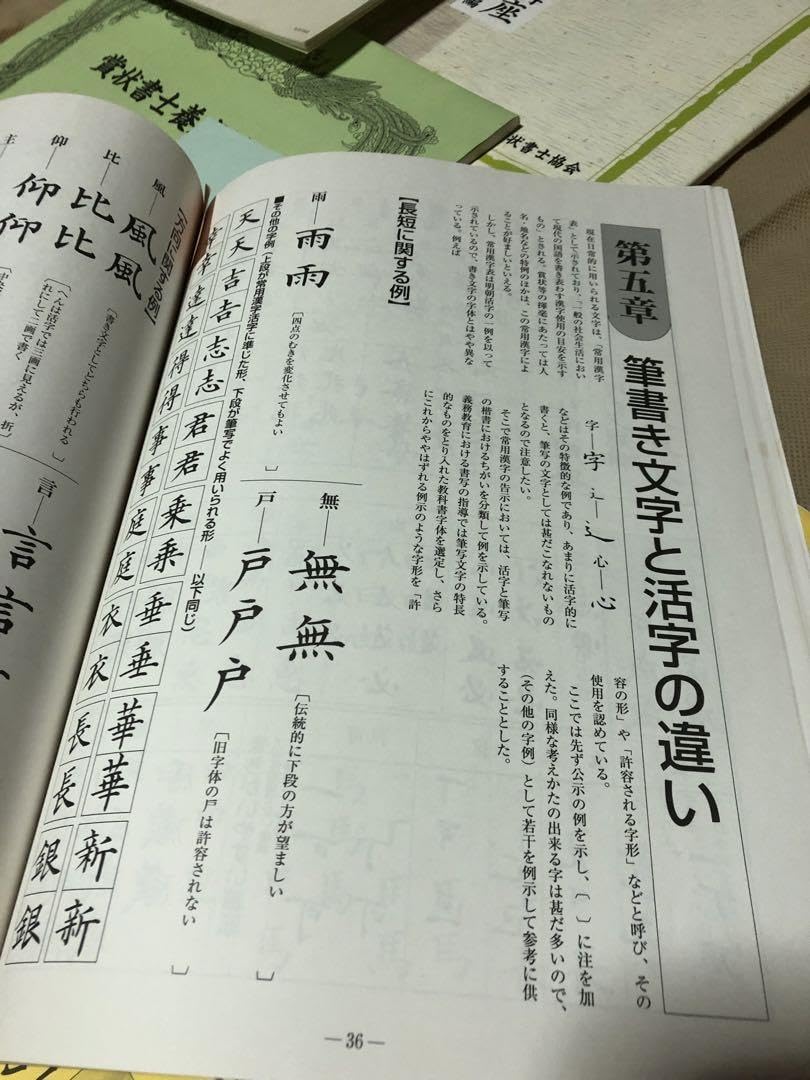 賞状書士養
座
編
状書士協会
第五章
筆書き文字と活字の違い
現在日常的に用いられる文字は、「常用漢字
表」として示されており、「一般の社会生活におい
て現代の国語を書き表わす漢字使用の目安を示す
もの」とされる。賞状等の揮毫にあたっては人
名・地名などの特例のほかは、この常用漢字によ
ることが好ましいといえる。
しかし、常用漢字表は明朝活字の一例を以って
示されているので、書き文字の字体とはやや異な
っている。例えば
字―字 辶―辶 心―心
などはその特徴的な例であり、あまりに活字的に
書くと、筆写の文字としては甚だこなれないもの
となるので注意したい。
そこで常用漢字の告示においては、活字と筆写
の楷書におけるちがいを分類して例を示している。
義務教育における書写の指導では筆写文字の特長
的なものをとり入れた教科書字体を選定し、さら
にこれからややはずれる例示のような字形を「許
容の形」や「許容される字形」などと呼び、その
使用を認めている。
ここでは先ず公示の例を示し、〔 〕に注を加
えた。同様な考えかたの出来る字は甚だ多いので、
(その他の字例)として若干を例示して参考に供
することとした。
【長短に関する例】
雨―雨雨
〔四点のむきを変化させてもよい 〕
無―無無
〔伝統的に下段の方が望ましい 〕
戸―戸戸戸
〔旧字体の戶は許容されない 〕
■その他の字例(上段が常用漢字活字に準じた形、下段が筆写でよく用いられる形 以下同じ)
天 吉 志 君 乗 垂 華 新
天 吉 志 君 乗 垂 華 新
達 得 事 庭 衣 長 銀
達 得 事 庭 衣 長 銀
【方向に関する例】
風―風風
比―比比
〔書き文字としてどちらも行われる 〕
仰―仰仰
〔へんは活字では三画に見えるが、折
れにして二画で書く 〕
主
言―言言
―36―